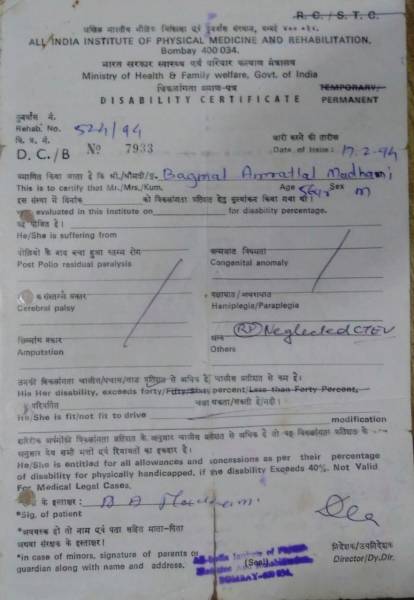 R. C. / S. T. C.
अखिल भारतीय भौतिक चिकित्सा एवं पुनर्वास संस्थान, बम्बई ४०० ०३४.
ALL INDIA INSTITUTE OF PHYSICAL MEDICINE AND REHABILITATION,
Bombay 400 034.
भारत सरकार स्वास्थ्य एवं परिवार कल्याण मंत्रालय
Ministry of Health & Family welfare, Govt. of India
विकलांगता प्रमाण-पत्र
TEMPORARY/
DISABILITY CERTIFICATE PERMANENT
पुनर्वास नं.
Rehab. No. 524/94
जारी करने की तारीख
D. C./B Nº 7933 Date of Issue: 17.2.94
प्रमाणित किया जाता है कि श्री./श्रीमती/कु. Bagmal Amratlal Madhani
This is to certify that Mr./Mrs./Kum. Age 56yrs Sex m
इस संस्था में दिनांक को विकलांगता प्रतिशत हेतु मूल्यांकन किया गया था।
evaluated in this Institute on for disability percentage.
यह पीड़ित है।
He/She is suffering from
पोलियो के बाद बचा हुआ स्तम्भ रोग जन्मजात विषमता
Post Polio residual paralysis Congenital anomaly
प्रकार पक्षाघात/अधरांगघात
Cerebral palsy Hamiplegia/Paraplegia
Neglected CTEV
प्रकार अन्य
Amputation Others
उनकी विकलांगता चालीस/पचास/साठ प्रतिशत से अधिक है/चालीस प्रतिशत से कम है।
His Her disability, exceeds forty/Fifty/Sixty percent/Less than Forty Percent,
चला सकता/सकती है/नहीं।
He/She is fit/not fit to drive modification
He/She is entitled for all allowances and concessions as per their percentage
of disability for physically handicapped, if the disability Exceeds 40%. Not Valid
For Medical Legal Cases.
के हस्ताक्षर: B A Madhani
*Sig. of patient
*अवयस्क हो तो नाम एवं पता सहित माता-पिता
अथवा संरक्षक के हस्ताक्षर। निदेशक/उपनिदेशक
*in case of minors, signature of parents or (Seal) Director/Dy.Dir.
guardian along with name and address.
All-India Institute of
Medicine and Rehabilitation
BOMBAY-400 034.